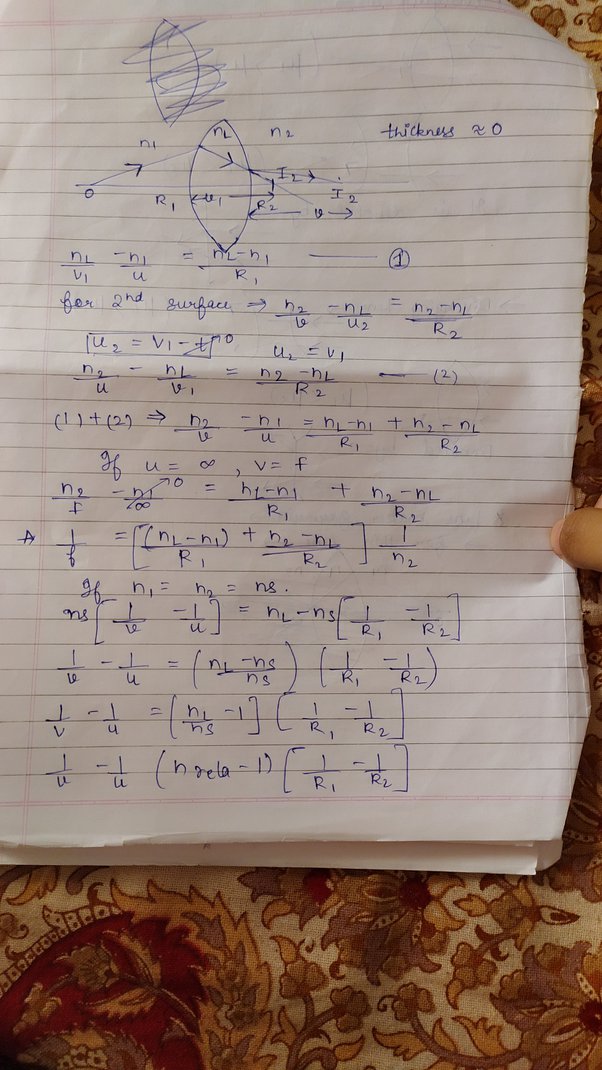 n1 nL n2 thickness ≈ 0
I2
O R1 v1 R2 v I2
nL/v1 - n1/u = nL - n1/R1 ——— (1)
for 2nd surface ⇒ n2/v - nL/u2 = n2 - nL/R2
u2 = v1 - t→0 u2 = v1
n2/u - nL/v1 = n2 - nL/R2 — (2)
(1) + (2) ⇒ n2/v - n1/u = nL - n1/R1 + n2 - nL/R2
If u = ∞ , v = f
n2/f - n1/∞→0 = nL - n1/R1 + n2 - nL/R2
1/f = [(nL - n1)/R1 + n2 - nL/R2] 1/n2
If n1 = n2 = ns.
ns[1/v - 1/u] = nL - ns[1/R1 - 1/R2]
1/v - 1/u = (nL - ns/ns) (1/R1 - 1/R2)
1/v - 1/u = [nL/ns - 1] [1/R1 - 1/R2]
1/v - 1/u (n rela - 1) [1/R1 - 1/R2]